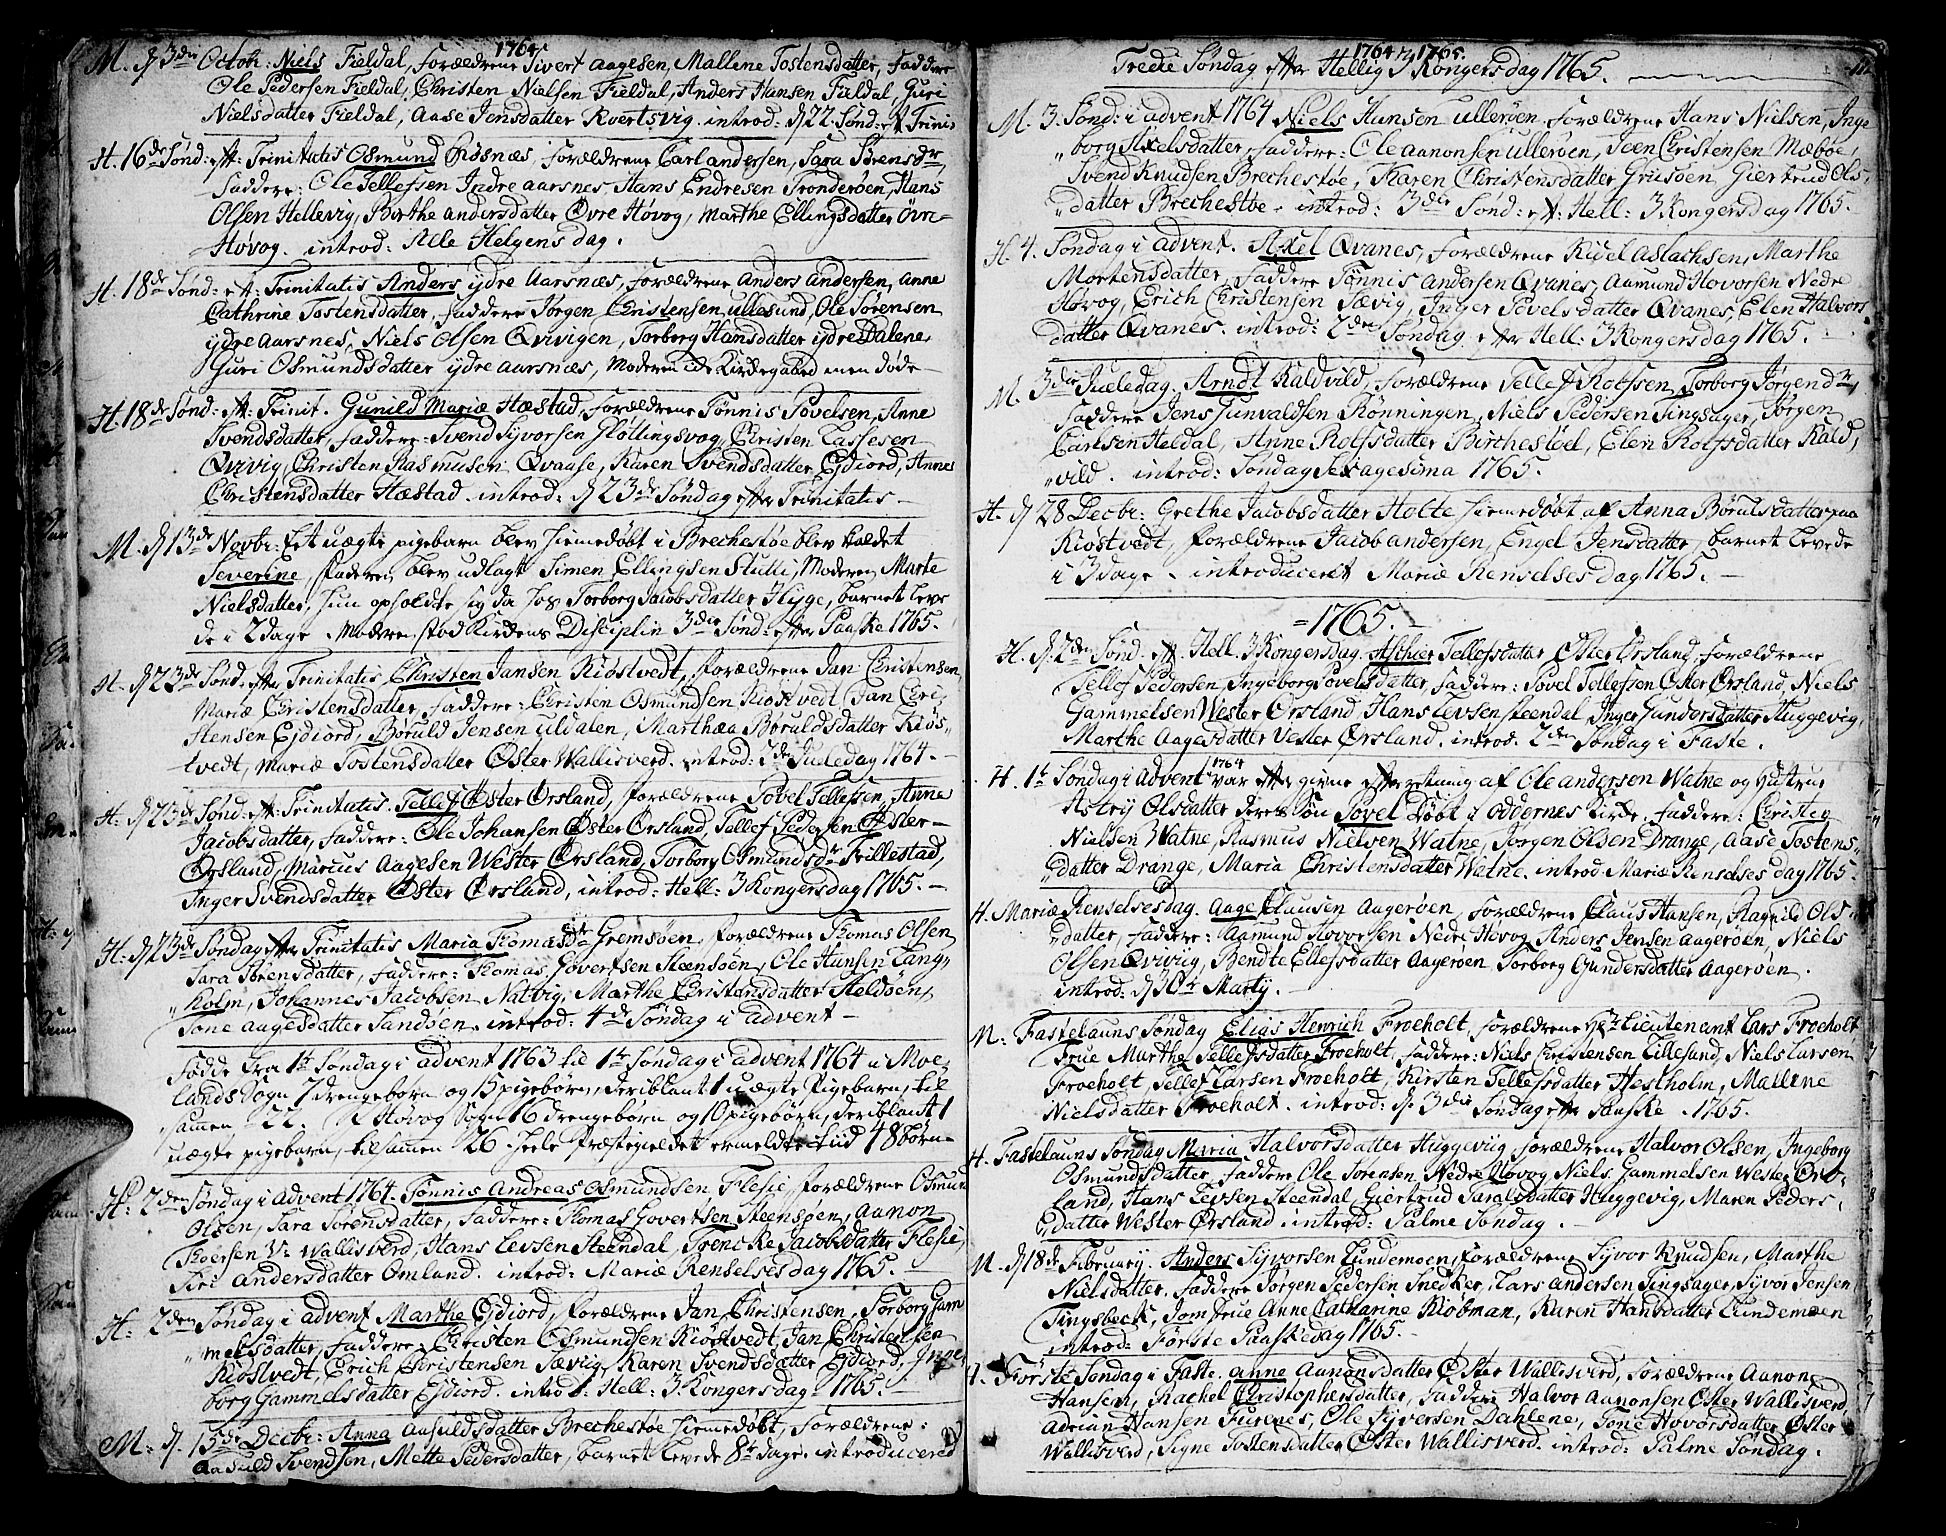 1764
M. d 3die Octob: Niels Fieldal, forældrene Sivert Aagesen, Mallene Tostensdatter, faddere
Ole Pedersen Fieldal, Christen Nielsen Fieldal, Anders Hansen Fieldal, Guri
Nielsdatter Fieldal, Aase Jensdatter Kvertsvig. introd: d 22. Sønd: eft Trinit
H. 16de Sønd: eft: Trinitatis Osmund Røsnæs, forældrene Carl Andersen, Sara Sørensdr,
faddere: Ole Tellefsen Indre Aarsnes, Hans Endresen Tronderøen, Hans
Olsen Hellevig, Birthe Andersdatter Øvre Høvog, Marthe Ellingsdatter Øvre
Høvog. introd: Alle Helgens dag.
H. 18de Sønd: eft: Trinitatis Anders ydre Aarsnæs, forældrene Anders Andersen, Anne
Cathrine Tostensdatter, faddere Jørgen Christensen Ullesund, Ole Sørensen
ydre Aarsnes, Niels Olsen Qvivigen, Torborg Hansdatter ydre Dalene,
Guri Osmundsdatter ydre Aarsnæs, Moderen ide Kirdegabed men døde
H. 18de Sønd: eft: Trinit. Gunild Mariæ Hæstad, forældrene Tønnis Povelsen, Anne
Svendsdatter, faddere: Svend Syvorsen Fløllingsvog, Christen Lassesen
Qvivig, Christen Rasmusen Qvaase, Karen Svendsdatter Eydiord, Anne
Christensdatter Hæstad. introd: d 23de Søndag efter Trinitatis
M. d 13de Novbr: Eet uægte pigebarn blev hiemedøbt i Brechestøe blev kaldet
Severine, faderen blev udlagt Simen Ellingsen Slutli, Moderen Marte
Nielsdatter, hun opholdte sig da hos Torborg Jacobsdatter Hyge, barnet leve
de i 2 dage. Moderen stod Kirdens Disciplin 3die Sønd: efter Paaske 1765.
H. d 23de Sønd. efter Trinitatis Christen Jansen Kiøstvedt, forældrene Jan Christensen,
Mariæ Christensdatter, faddere: Christen Osmundsen Kiøstvedt, Jan Chri
stensen Eydiord, Børuld Jensen Uldalen, Marthæa Børuldsdatter Kiøs
tvedt, Mariæ Tostensdatter Øster Wallisverd. introd: 2den Juledag 1764.
H. d 23de Sønd: eft: Trinitatis. Tellef Øster Ørsland, forældrene Povel Tellefsen, Anne
Jacobsdatter, faddere: Ole Johansen Øster Ørsland, Tellef Pedersen Øster
Ørsland, Marcus Aagesen Wester Ørsland, Torborg Osmundsdr Trillestad,
Inger Svendsdatter Øster Ørsland, introd: Hell: 3 Kongersdag 1765.
H. d 23de Søndag efter Trinitatis Maria Thomasdatr Gremsøen, forældrene Thomas Olsen,
Sara Sørensdatter, faddere: Thomas Govertsen Steensøen, Ole Hansen Lang
holm, Johannes Jacobsen Natvig, Marthe Christensdatter Heldøen,
Tone Aagesdatter Sandøen. introd: 4de Søndag i Advent
Fødde fra 1te Søndag i Advent 1763 til 1te Søndag i Advent 1764 i Moe
lands Sogn 7 drengebørn og 15 pigebørn, deriblant 1 uægte Pigebarn, til
sammen 22. I Høvog Sogn 16 drengebørn og 10 pigebørn, deriblant 1
uægte pigebarn, tilsammen 26. heele Præstegieldet ermeldte tiid 48 børn
H: 2den Søndag i Advent 1764. Tønnis Andreas Osmundsen Flesie, forældrene Osmun
Olsen, Sara Sørensdatter, faddere: Thomas Govertsen Steensøen, Aanon
Thoersen V: Wallisverd, Hans Levsen Steendal, Trencke Jacobsdatter Flesie,
Siri Andersdatter Omland. introd: Mariæ Renselses dag 1765.
H: 2den Søndag i Advent Marthe Eydiord, forældrene Jan Christensen, Torborg Gam
melsdatter, faddere: Christen Osmundsen Kiøstvedt, Jan Christensen
Kiøstvedt, Erich Christensen Sævig, Karen Svendsdatter Eydiord, Inge
borg Gammelsdatter Eydiord. introd: Hell: 3 Kongersdag 1765.
M: d. 15de Decbr: Anna Aasuldsdatter Brechestøe hiemedøbt, forældrene:
Aasuld Svendsen, Mette Pedersdatter, barnet levede 8te dage. introduceret
1764 & 1765.
Tredie Søndag efter Hellig 3 Kongers dag 1765.
M. 3. Sønd: i Advent 1764 Niels Hansen Ullerøen, forældrene Hans Nielsen, Inge
borg Axelsdatter, faddere: Ole Aanonsen Ullerøen, Teen Christensen Mæbøe,
Svend Knudsen Brechestøe, Karen Christensdatter Griisøen, Giertrud Ols
datter Brechestøe. introd: 3die Sønd: eft: Hell: 3 Kongersdag 1765.
H. 4. Søndag i Advent. Axel Qvanes, forældrene Kidel Aslachsen, Marthe
Mortensdatter, faddere Tønnis Andersen Qvanes, Aamund Hovorsen Nedre
Høvog, Erich Christensen Sævig, Inger Povelsdatter Qvanes, Elen Halvors
datter Qvanes. introd: 2den Søndag efter Hell: 3 Kongersdag 1765.
M. 3die Jueledag. Arndt Kaldvild, forældrene Tellef Rolfsen, Torborg Jørgendr,
faddere Jens Gunvaldsen Rønningen, Niels Pedersen Tingsager, Jørgen
Carlsen Heldal, Anne Rolfsdatter Birchestøel, Elen Rolfsdatter Kald
vild. introd: Søndag Sexagesima 1765.
H. d 28 Decbr: Grethe Jacobsdatter Holte hiemedøbt af Anna Børulsdatter paa
Kiøstvedt, forældrene Jacob Andersen, Engel Jensdatter, barnet levede
i 3 dage. introduceret Mariæ Renselses Dag 1765.
= 1765.
H. d. 2den Sønd. eft. Hell. 3 Kongersdag. Asthier Tellefsdatter Øster Ørsland, forældrene
Tellef Pedersen, Ingeborg Povelsdatter, faddere: Povel Tellefsen Øster Ørsland, Niels
Gammelsen Wester Ørsland, Hans Levsen Steendal, Inger Gundersdatter Huggevig,
Marthe Aagesdatter Vester Ørsland. introd. 2den Søndag i Faste.
H. 1te Søndag i Advent 1764 var efter givne efterretning af Ole Andersen Watne og Hustrue
Astrij Olsdatter deres Søn Povel Døbt i Oddernes Kirde. faddere: Christen
Nielsen Watne, Rasmus Nielsen Watne, Jørgen Olsen Drange, Aase Tostens
datter Drange, Maria Christensdatter Watne. introd. Mariæ Renselses dag 1765.
H. Mariæ Renselsesdag. Aage Clausen Aagerøen, forældrene Claus Hansen, Ragnild Ols
datter, faddere: Aamund Hovorsen Nedre Høvog, Anders Jensen Aagerøen, Niels
Olsen Qvivig, Bendte Ellefsdatter Aagerøen, Torborg Gundersdatter Aagerøen.
introd: d 30te Martij.
M: Fastelauns Søndag Elias Henrich Froeholt, forældrene Hr Lieutenant Lars Froeholt
Frue Marthe Tellefsdatter Froeholt, faddere: Niels Christensen Lillesand, Niels Larsen
Froeholt, Tellef Larsen Froeholt, Kirsten Tellefsdatter Hestholm, Mallene
Nielsdatter Froeholt. introd: d. 3die Søndag efter Paaske 1765.
H. Fastelauns Søndag Maria Halvorsdatter Huggeviig, forældrene Halvor Olsen, Ingeborg
Osmundsdatter, faddere Ole Sørensen Nedre Høvog, Niels Gammelsen Wester Ørs
land, Hans Levsen Steendal, Giertrud Saralsdatter Huggevig, Maren Peders
datter Wester Ørsland. introd: Palme Søndag.
M. d 18de Februarij. Anders Syvorsen Lundemoen, forældrene Syvor Knudsen, Marthe
Nielsdatter, faddere Jørgen Pedersen Snedker, Lars Andersen Tingsager, Syvor Jensen
Tingsbeck, Jomfrue Anne Catharine Kiøbman, Karen Hansdatter Lundemoen
introd: Første Paaskedag 1765.
H. Første Søndag i Faste. Anne Aanonsdatter Øster Wallisverd, forældrene Aanon
Hansen, Rachel Christophersdatter, faddere Halvor Aanonsen Øster Wallisverd,
Adrian Hansen Furenes, Ole Syversen Dahlene, Tone Hovorsdatter Øster
Wallisverd, Signe Tostensdatter Øster Wallisverd. introd: Palme Søndag.